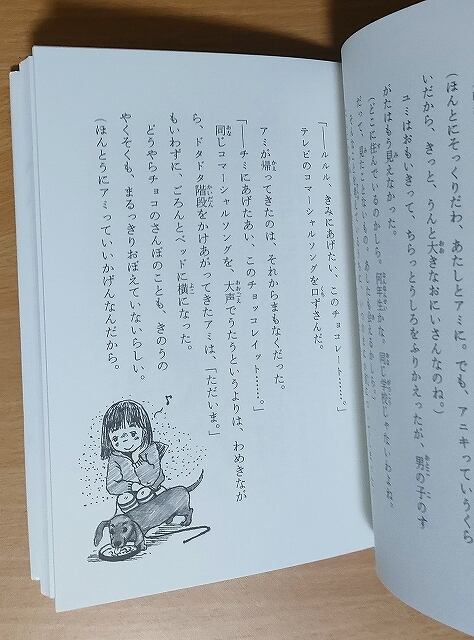 （ほんとにそっくりだわ、あたしとアミに。でも、アニキっていうくら
いだから、きっと、うんと大きなおにいさんなのね。）
ユミはおもいきって、ちらっとうしろをふりかえったが、男の子のす
がたはもう見えなかった。
（どこに住んでいるのかしら。何年生かな。同じ学校じゃないわよね。
だって、見たことないもの。
「――ルルル、きみにあげたい、このチョコレート……。」
テレビのコマーシャルソングを口ずさんだ。
アミが帰ってきたのは、それからまもなくだった。
「――チミにあげたあい、このチョッコレイィット……。」
同じコマーシャルソングを、大声でうたうというよりは、わめきなが
ら、ドタドタ階段をかけあがってきたアミは、「ただいま。」
もいわずに、ごろんとベッドに横になった。
どうやらチョコのさんぽのことも、きのうの
やくそくも、まるっきりおぼえていないらしい。
（ほんとうにアミっていいかげんなんだから。